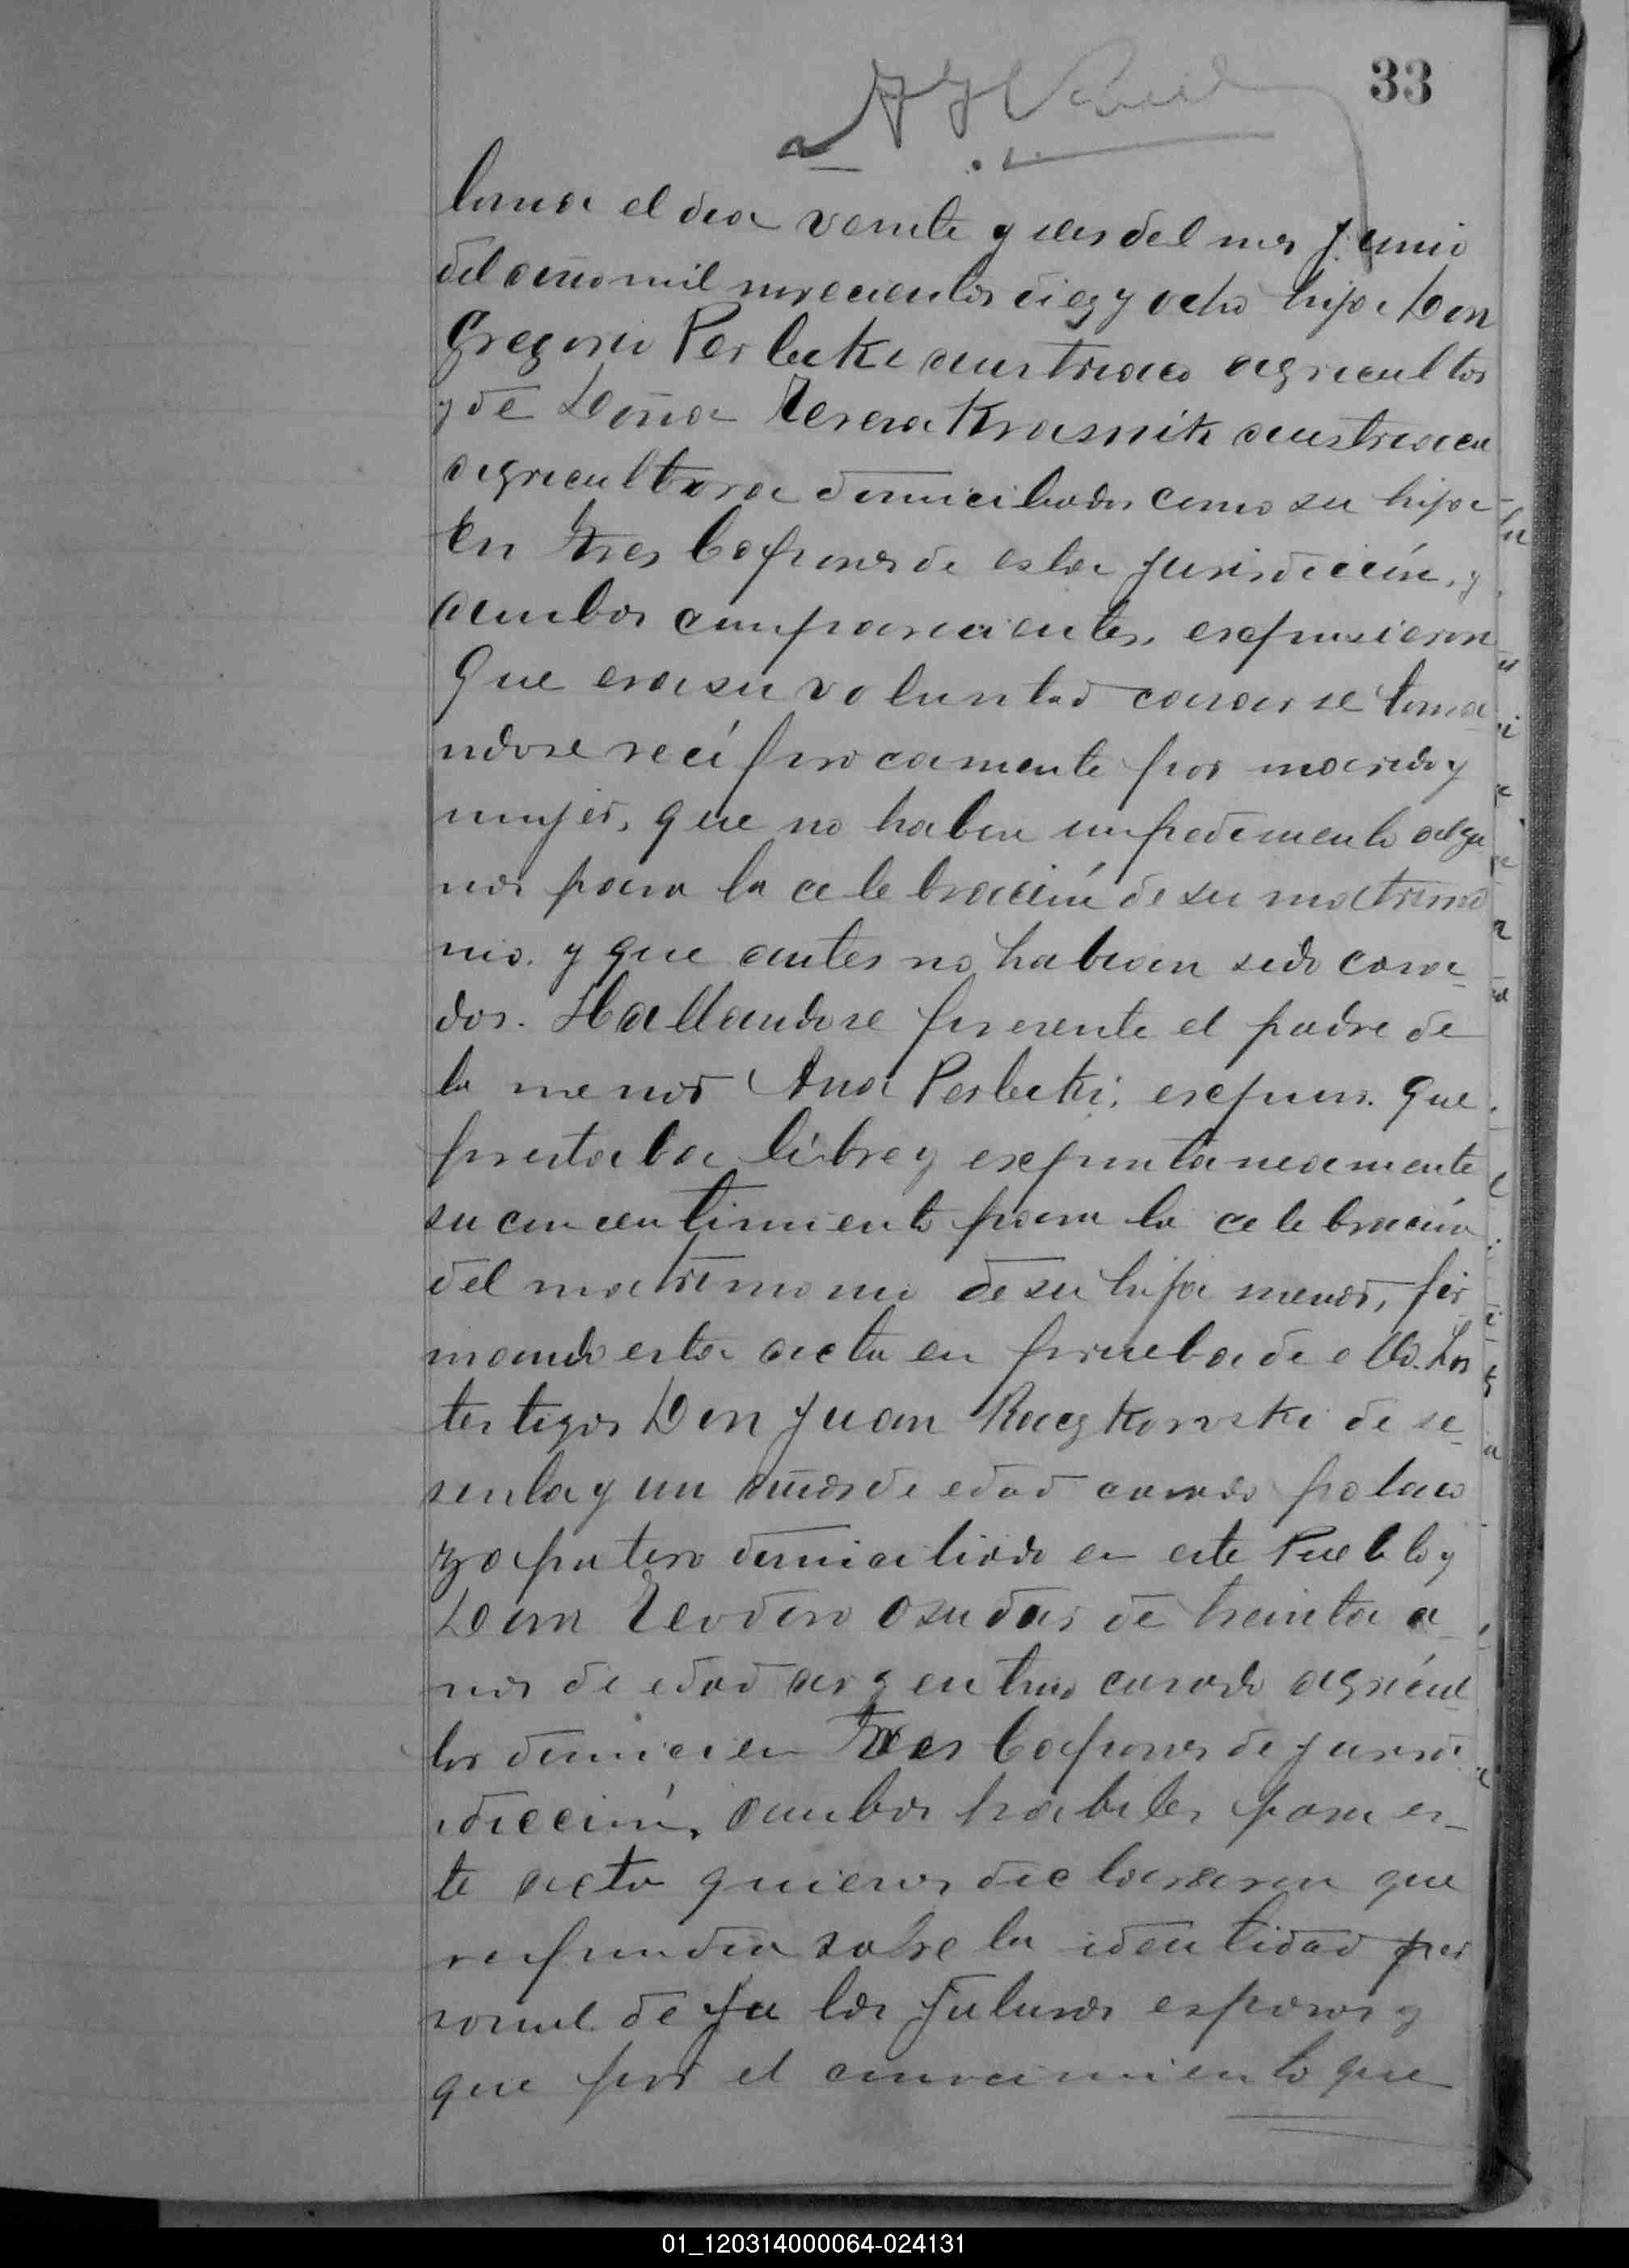 33
lonia el dia veinte y seis del mes Junio
del año mil novecientos diez y ocho hija Don
Gregorio Perbeki austriaco agricultor
y de Doña Teresa Krasnik austriaca
agricultora domiciliados como su hija
en Tres Capones de esta jurisdicción, y
ambos comparecientes, expusieron
Que era su voluntad casarse toma
ndose recíprocamente por marido y
mujer, que no habia impedimento algu
nos para la celebración de su matrimo
nio. y que antes no habian sido casa-
dos. Hallandose presente el padre de
la menor Ana Perbeki; expuso. Que
prestaba libre y expontaneamente
su concentimiento para la celebración
del matrimonio de su hija menor, fir
mando esta acta en prueba de ello. Los
testigos Don Juan Raczkowski de se-
senta y un años de edad casado polaco
zapatero domiciliado en este Pueblo y
Don Teodoro Osudar de treinta a-
ños de edad argentino casado agricul
tor domici en Tres Capones de jurisdi
idicción, ambos habiles para es-
te acto quienes declararon que
respondia sobre la identidad per
sonal de fu los futuros esposos y
que por el conocimiento que
01_120314000064-024131